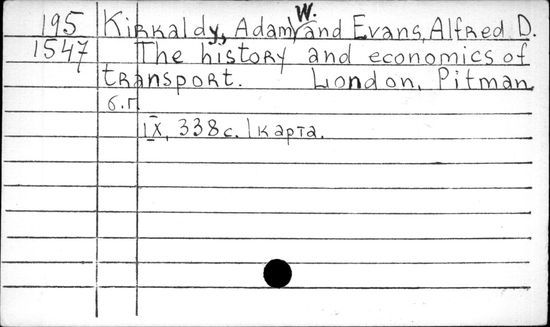 195 Kirkaldy, Adam W. and Evans, Alfred D.
1547 The history and economics of
transport. London, Pitman,
б.г.
IX, 338 с. 1 карта.